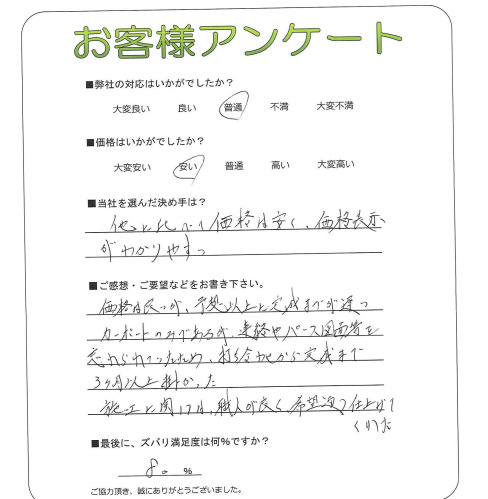 お客様アンケート
■弊社の対応はいかがでしたか？
大変良い 良い 普通 不満 大変不満
■価格はいかがでしたか？
大変安い 安い 普通 高い 大変高い
■当社を選んだ決め手は？
他に比べて価格は安く、価格表示
がわかりやすい
■ご感想・ご要望などをお書き下さい。
価格は良いが、予想以上に完成までが遅い
カーポートのみであるが、連絡やパース図面等を
忘れられていたため、打ち合わせから完成まで
3ヶ月以上掛かった
施工に関しては、職人が良く、希望通り仕上げて
くれた
■最後に、ズバリ満足度は何%ですか？
80 %
ご協力頂き、誠にありがとうございました。